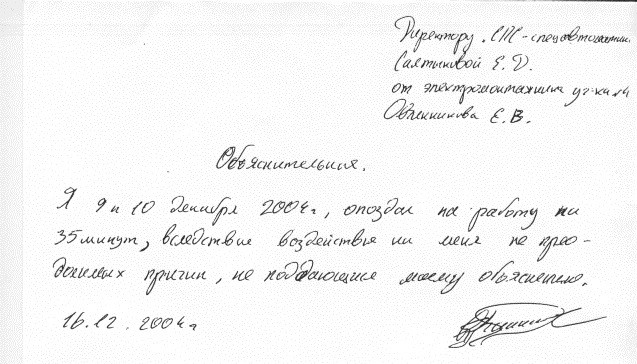 Директору СТС-спецавтоматик
Салтыковой Е. Д.
от электромонтажника уч-ка №4
Овчинникова Е. В.
Объяснительная.
Я 9 и 10 декабря 2004г, опоздал на работу на
35 минут, вследствие воздействия на меня не прео-
долимых причин, не поддающиеся моему объяснению.
16.12.2004г